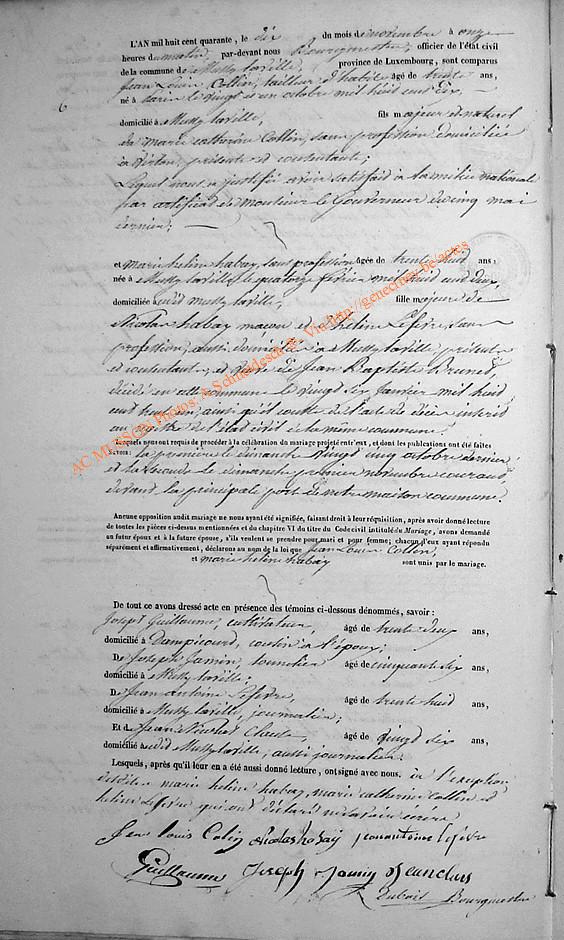 L'AN mil huit cent quarante, le dix du mois de novembre à onze
heures du matin, par-devant nous Bourgmestre, officier de l'état civil
de la commune de Mussy la ville, province de Luxembourg, sont comparus
Jean Louis Collin, tailleur d'habits âgé de trente ans,
né à le vingt et un octobre mil huit cent dix,
6
domicilié à Mussy la ville, fils majeur et naturel
de marie catherine Collin, sans profession domiciliée
à Virton, présente et consentante;
Lequel nous a justifié avoir satisfait à la milice nationale
par certificat de Monsieur le Gouverneur du cinq mai
dernier;
et marie heline habay, sans profession âgée de trente huit ans;
née à Mussy la ville le quatorze février mil huit cent deux,
domiciliée audit Mussy la ville, fille majeure de
Nicolas habay maçon et d'heline Lefevre, sans
profession, aussi domiciliés à Mussy la ville présents
et consentants, et veuve de Jean Baptiste
décédé en cette commune le vingt six Janvier mil huit
cent, ainsi qu'il conste de l'acte de décès inscrit
au registre de l'état civil de la même commune.
Lesquels nous ont requis de procéder à la célébration du mariage projeté entr'eux, et dont les publications ont été faites
savoir: la première le dimanche vingt cinq octobre dernier
et la seconde le dimanche premier novembre courant,
devant la principale porte de notre maison commune.
Aucune opposition audit mariage ne nous ayant été signifiée, faisant droit à leur réquisition, après avoir donné lecture
de toutes les pièces ci-dessus mentionnées et du chapitre VI du titre du Code civil intitulé du Mariage, avons demandé
au futur époux et à la future épouse, s'ils veulent se prendre pour mari et pour femme; chacun d'eux ayant répondu
séparément et affirmativement, déclarons au nom de la loi que Jean Louis Collin,
et marie heline habay sont unis par le mariage.
De tout ce avons dressé acte en présence des témoins ci-dessous dénommés, savoir:
Joseph Guillaume, cultivateur, âgé de trente deux ans,
domicilié à Dampicourt, cousin à l'époux;
De Joseph Jamin, tonnelier âgé de cinquante six ans,
domicilié à Mussy la ville;
De Jean Antoine Lefevre, âgé de trente huit ans,
domicilié à Mussy la ville, journalier;
Et de Jean Nicolas âgé de vingt six ans,
domicilié audit Mussy la ville, aussi journalier.
Lesquels, après qu'il leur en a été aussi donné lecture, ont signé avec nous. à l'exception
desdites marie heline habay, marie catherine Collin et
heline Lefevre qui ont déclaré ne savoir écrire
Jean louis Colin Nicolas habaÿ jean antoine lefevre
Guillaume Joseph Jamin
Bourgmestre
AC MUSSON Photos: A. Schneidesch fr. Via http://genecimey.be/actes